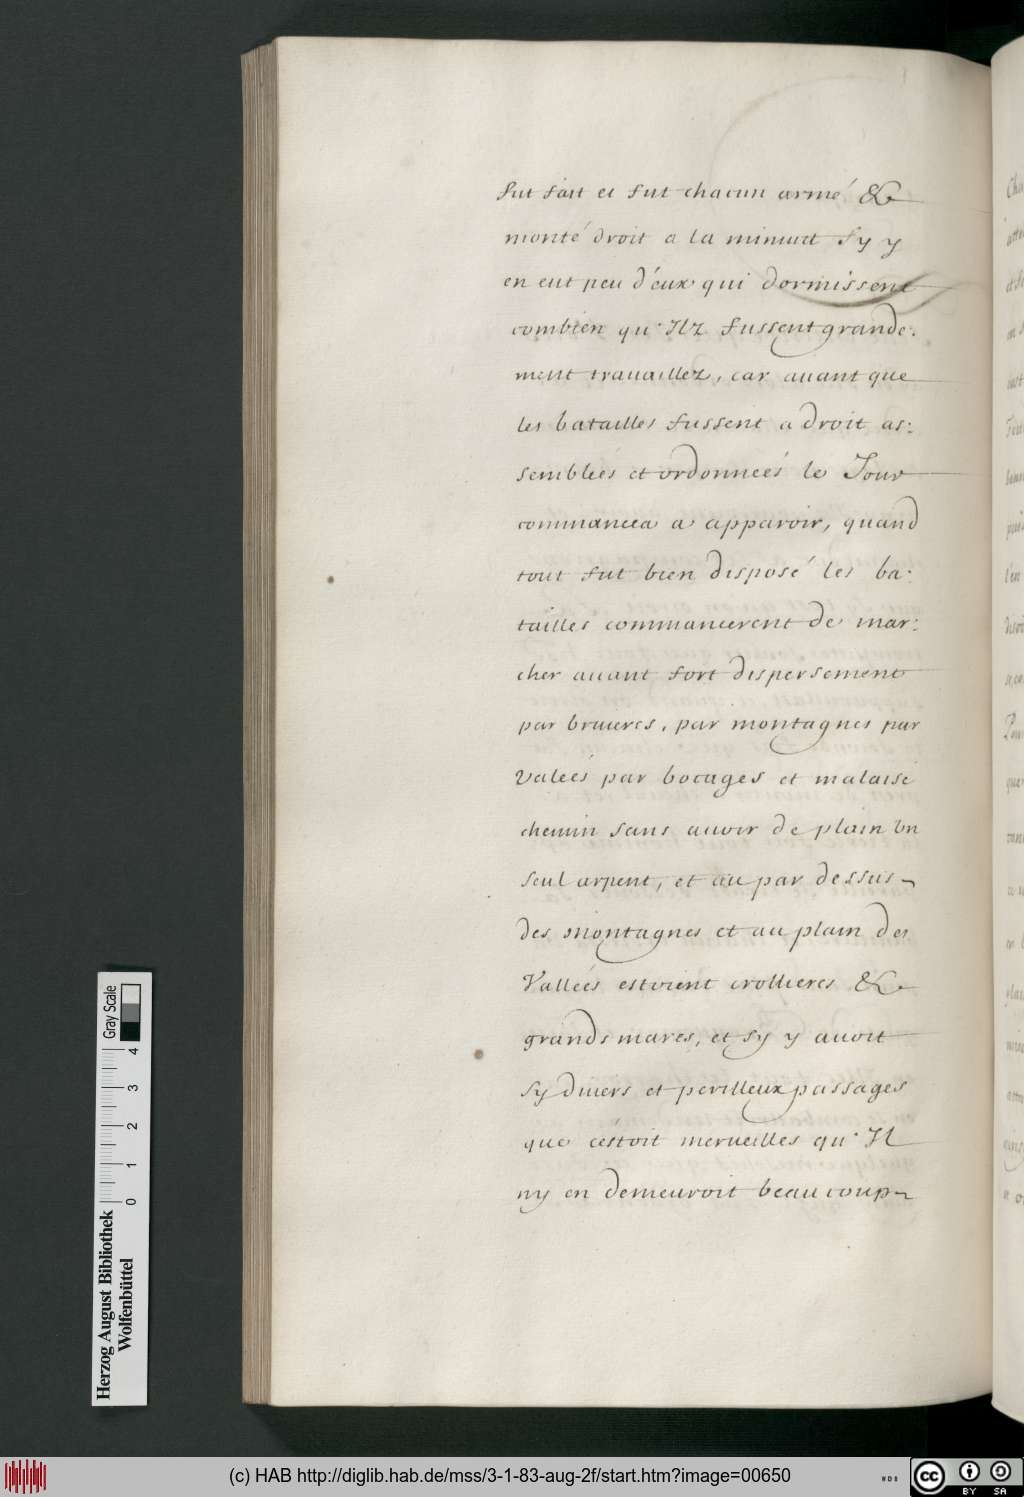 fut fait et fut chacun armé &
monté droit a la minuit sy y
en eut peu d'eux qui dormissent
combien qu'Ilz fussent grande:
ment trauaillez, car auant que
les batailles fussent a droit as:
sembleés et ordonneés le Jour
commancea a apparoir, quand
tout fut bien disposé les ba:
tailles commancerent de mar:
cher auant fort dispersement
par bruieres, par montagnes par
valeés par bocages et malaisé
chemin sans auoir de plain vn
seul arpent, et au par dessus
des montagnes et au plain des
Valleés estoient crollieres &
grands mares, et sy y auoit
sy diuers et perilleux passages
que céstoit merueilles qu'Il
ny en demeuroit beaucoup
Herzog August Bibliothek
Wolfenbüttel
0 1 2 3 4
Gray Scale
(c) HAB http://diglib.hab.de/mss/3-1-83-aug-2f/start.htm?image=00650
cc BY SA